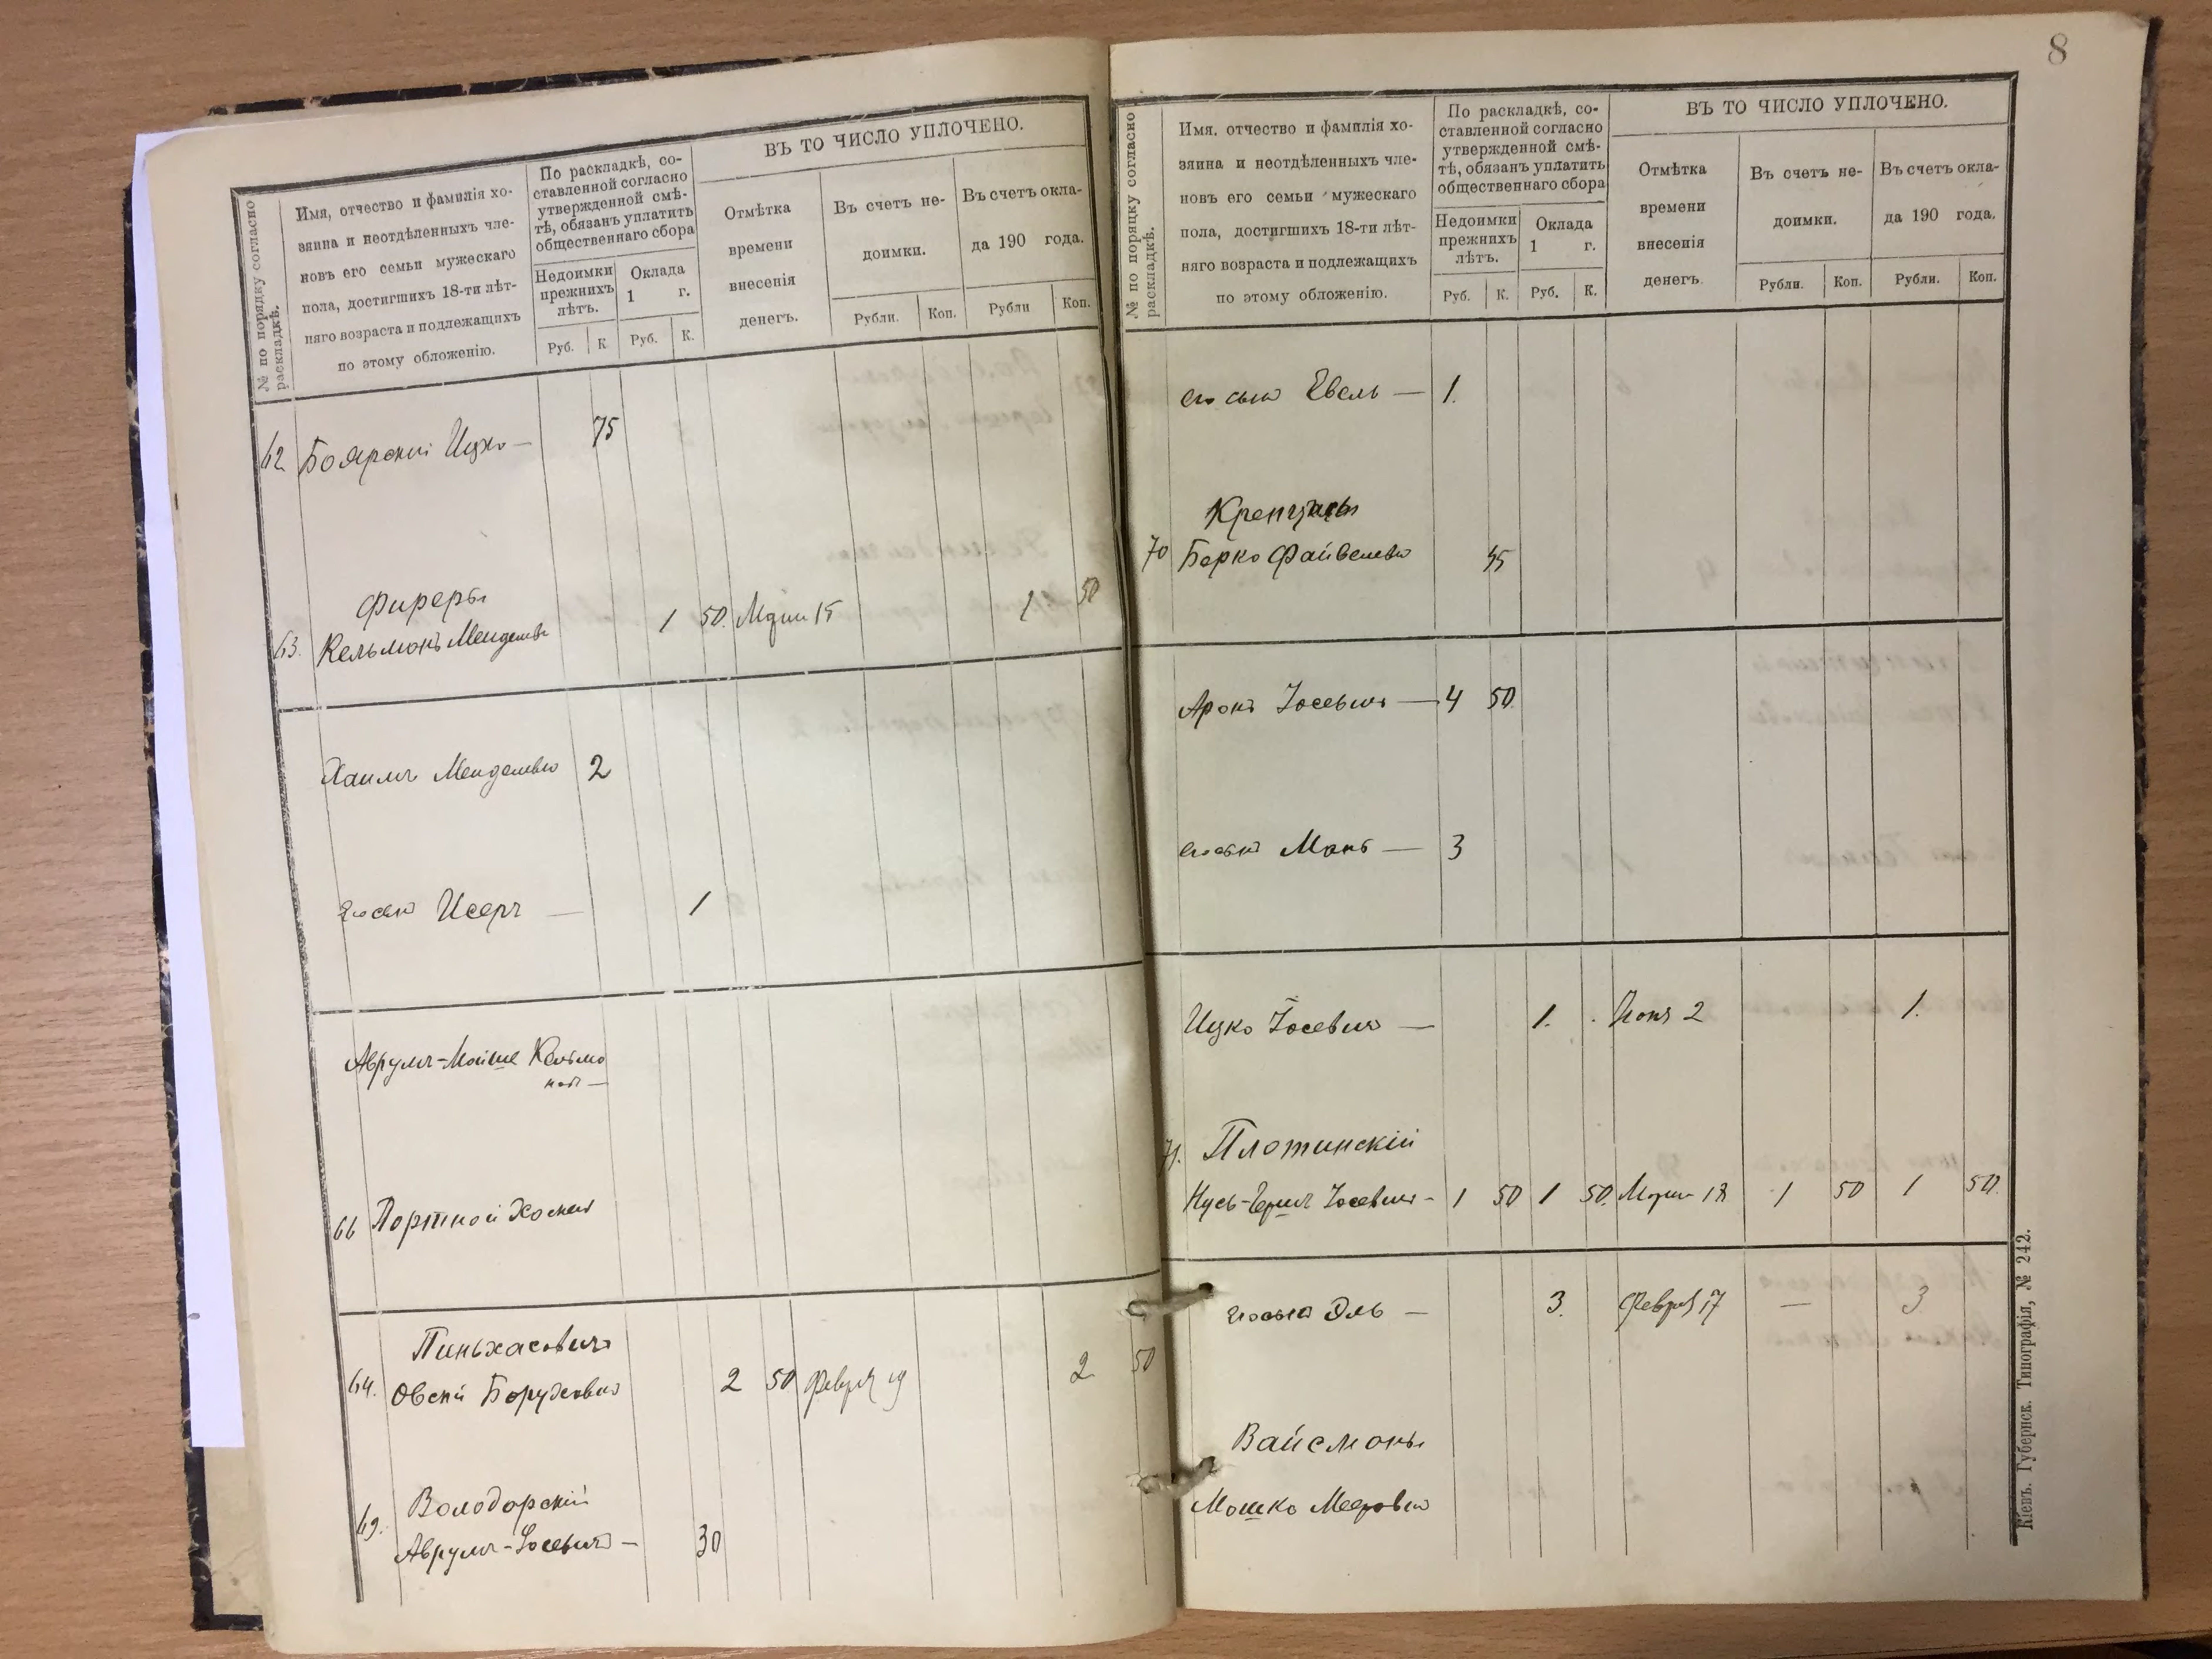 № по порядку согласно
раскладкѣ.
Имя, отчество и фамилія хо-
зяина и неотдѣленныхъ чле-
новъ его семьи мужескаго
пола, достигшихъ 18-ти лѣт-
няго возраста и подлежащихъ
по этому обложенію.
По раскладкѣ, со-
ставленной согласно
утвержденной смѣ-
тѣ, обязанъ уплатить
общественнаго сбора
Недоимки
прежнихъ
лѣтъ.
Оклада
1 г.
Руб. К Руб. К.
ВЪ ТО ЧИСЛО УПЛОЧЕНО.
Отмѣтка
времени
внесенія
денегъ.
Въ счетъ не-
доимки.
Въ счетъ окла-
да 190 года.
Рубли. Коп. Рубли Коп.
62 Боярскій Ицко — 75
Фиреры
63. Кельманъ Менделевъ 1 50. 15 1 50
Хаимъ Менделевъ 2
его сынъ Исеръ — 1
Аврумъ-Мойше Кельма
новъ —
66 Портной Хоскель
Пиньхасовичъ
64. Овсій Боруховъ 2 50 Февр 19 2 50
Володарскій
69. Аврумъ-Іосевичъ — 30
8
№ по порядку согласно
раскладкѣ.
Имя, отчество и фамилія хо-
зяина и неотдѣленныхъ чле-
новъ его семьи мужескаго
пола, достигшихъ 18-ти лѣт-
няго возраста и подлежащихъ
по этому обложенію.
По раскладкѣ, со-
ставленной согласно
утвержденной смѣ-
тѣ, обязанъ уплатить
общественнаго сбора
Недоимки
прежнихъ
лѣтъ.
Оклада
1 г.
Руб. К. Руб. К.
ВЪ ТО ЧИСЛО УПЛОЧЕНО.
Отмѣтка
времени
внесенія
денегъ.
Въ счетъ не-
доимки.
Въ счетъ окла-
да 190 года.
Рубли. Коп. Рубли. Коп.
его сынъ Евель — 1.
70 Берко Файвелевъ 45
Аронъ Іосевичъ — 4 50.
его сынъ Мань — 3
Ицко Іосевичъ — 1. 2 1.
71. Плотинскій
Нусь-Гершъ Іосевичъ - 1 50 1 50. 18 1 50 1 50.
его сынъ Эль — 3. Февр 17 — 3
Вайсманы
Мошко Мееровъ
Кіевъ. Губернск. Типографія, № 242.